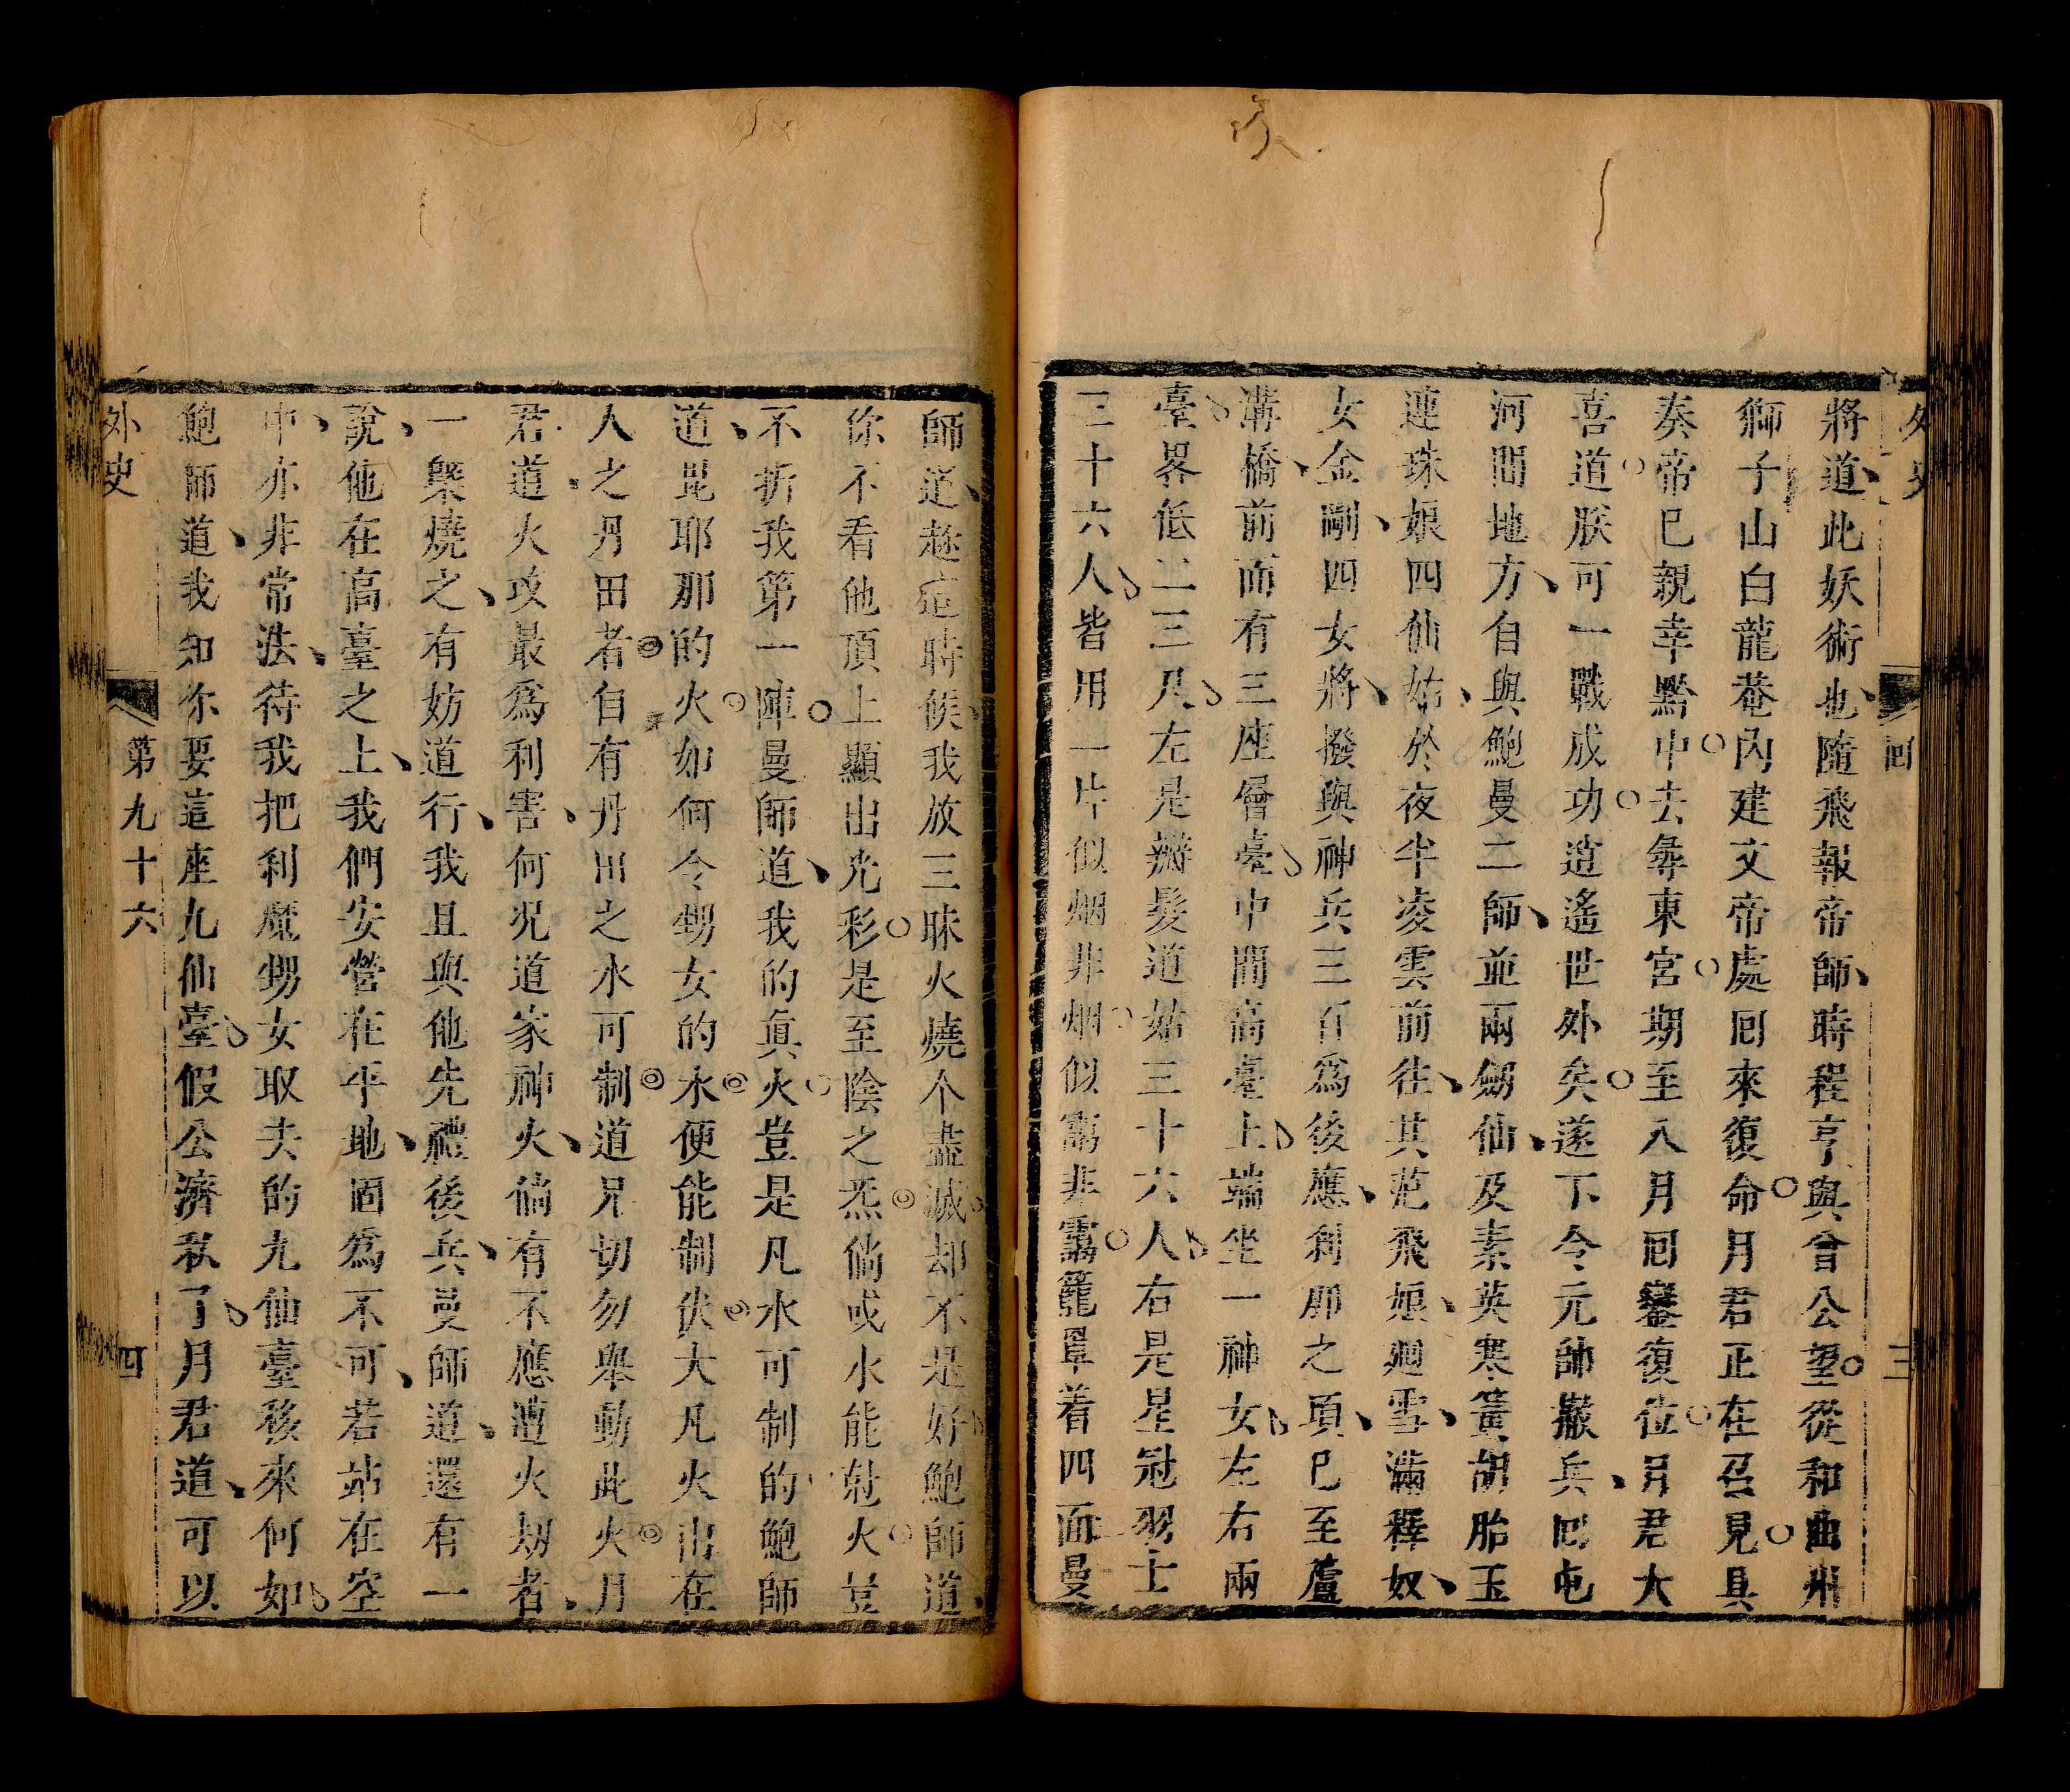 外史
回
三
將道此妖術也隨飛報帝師時程亨與曾公望從和曲州
獅子山白龍菴內建文帝處囘來復命月君正在召見具
奏帝已親幸黔中去彝東宮期至八月囘鑾復位月君大
喜道朕可一戰成功逍遙世外矣遂下令元帥撤兵囘屯
河間地方自與鮑曼二師並兩劒仙及素英寒簧胡胎玉
連珠娘四仙姑於夜半凌雲前往其范飛娘廻雪滿釋奴
女金剛四女將撥與神兵三百爲後應刹那之項已至蘆
溝橋前面有三座層臺中間高臺上端坐一神女左右兩
臺畧低二三尺左是瓣髮道姑三十六人右是星冠羽士
三十六人皆用一片似烟非烟似靄非靄籠罩着四面曼
師道趂這時候我放三昧火燒个盡滅却不是好鮑師道
你不看他頂上顯出光彩是至陰之炁倘或水能尅火豈
不折我第一陣曼師道我的眞火豈是凡水可制的鮑師
道毘耶那的火如何令甥女的水便能制伏大凡火出在
人之丹田者自有丹田之水可制道兄切勿舉動此火月
君道火攻最爲利害何况道家神火倘有不應遭火刼者
一槩燒之有妨道行我且與他先禮後兵曼師道還有一
說他在高臺之上我們安營在平地固爲不可若站在空
中亦非常法待我把利魔甥女取去的九仙臺移來何如
鮑師道我知你要這座九仙臺假公濟私了月君道可以
外史
第九十六
四